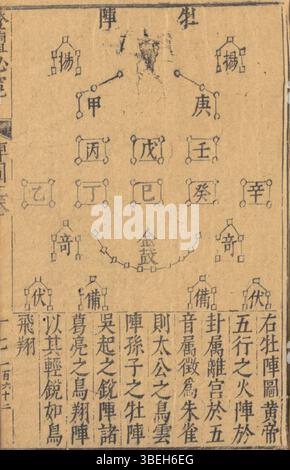 牡陣
揚 揚
庚 甲
壬 戊 丙
辛 癸 巳 丁 乙
奇 金鼓 奇
伏 備 備 伏
右牡陣圖黃帝
五行之火陣於
卦屬離宮於五
音屬徵為朱雀
則太公之鳥雲
陣孫子之牡陣
吳起之銳陣諸
葛亮之鳥翔陣
以其輕銳如鳥
飛翔
一百六十二
alamy
a
3BEH6EG